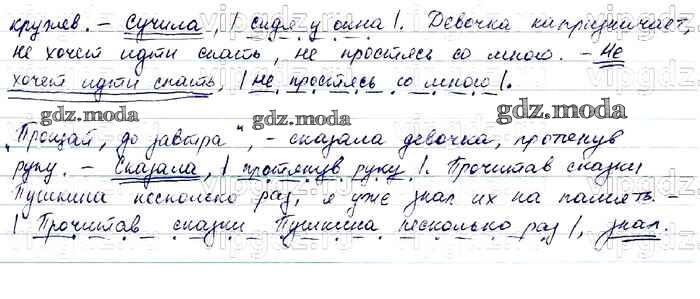 кружев. – Сучила, | сидя у окна |. Девочка капризничает,
не хочет идти спать, не простясь со мною. – Не
хочет идти спать, | не простясь со мною |.
gdz.moda gdz.moda
„Прощай, до завтра", – сказала девочка, протянув
руку. – Сказала, | протянув руку |. Прочитав сказки
Пушкина несколько раз, я уже знал их на память. –
| Прочитав сказки Пушкина несколько раз |, знал.